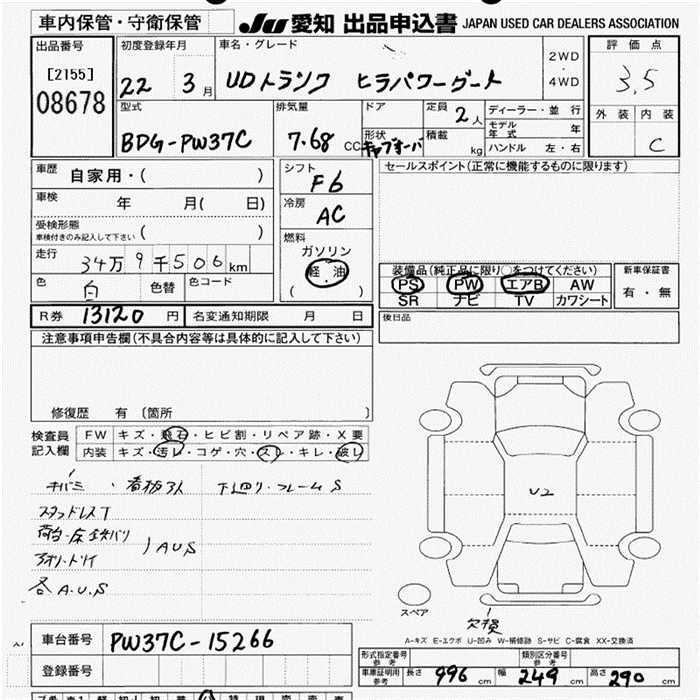 車内保管・守衛保管
JU 愛知 出品申込書 JAPAN USED CAR DEALERS ASSOCIATION
出品番号
[2155]
08678
初度登録年月
22 3月
車名・グレード
UDトラック ヒラパワーゲート
2WD
・
4WD
評価点
3.5
外装 内装
C
型式
BDG-PW37C
排気量
7.68 CC
ドア
形状
キャブオーバ
定員
2人
積載
kg
ディーラー・並行
モデル年式 年
ハンドル 左・右
車歴
自家用・( )
車検
年 月( 日)
受検形態
車検付きのみ記入して下さい ( )
走行
34万9千506km
色
白
色替
色コード
シフト
F6
冷房
AC
燃料
ガソリン
軽・油
( )
セールスポイント(正常に機能するものに限ります)
装備品(純正品に限り○をつけてください)
PS PW エアB AW
SR ナビ TV カワシート
新車保証書
有・無
R券 13120 円
名変通知期限 月 日
後日品
注意事項申告欄(不具合内容等は具体的に記入して下さい)
修復歴 有〔箇所 〕
検査員
記入欄
FW キズ・飛石・ヒビ割・リペア跡・X要
内装 キズ・汚レ・コゲ・穴・スレ・キレ・破レ
キバミ・看板ヌス 下廻り・フレームS
スタッドレスT
荷台・床鉄バリ
アオリ・トリイ
)AUS
各A.U.S
U2
スペア
欠損
A-キズ E-エクボ U-凹み W-補修跡 S-サビ C-腐食 XX-交換済
車台番号 PW37C-15266
登録番号
形式指定番号
参考
類別区分番号
参考
車庫証明用
参考
長さ 996 cm 幅 249 cm 高さ 290 cm